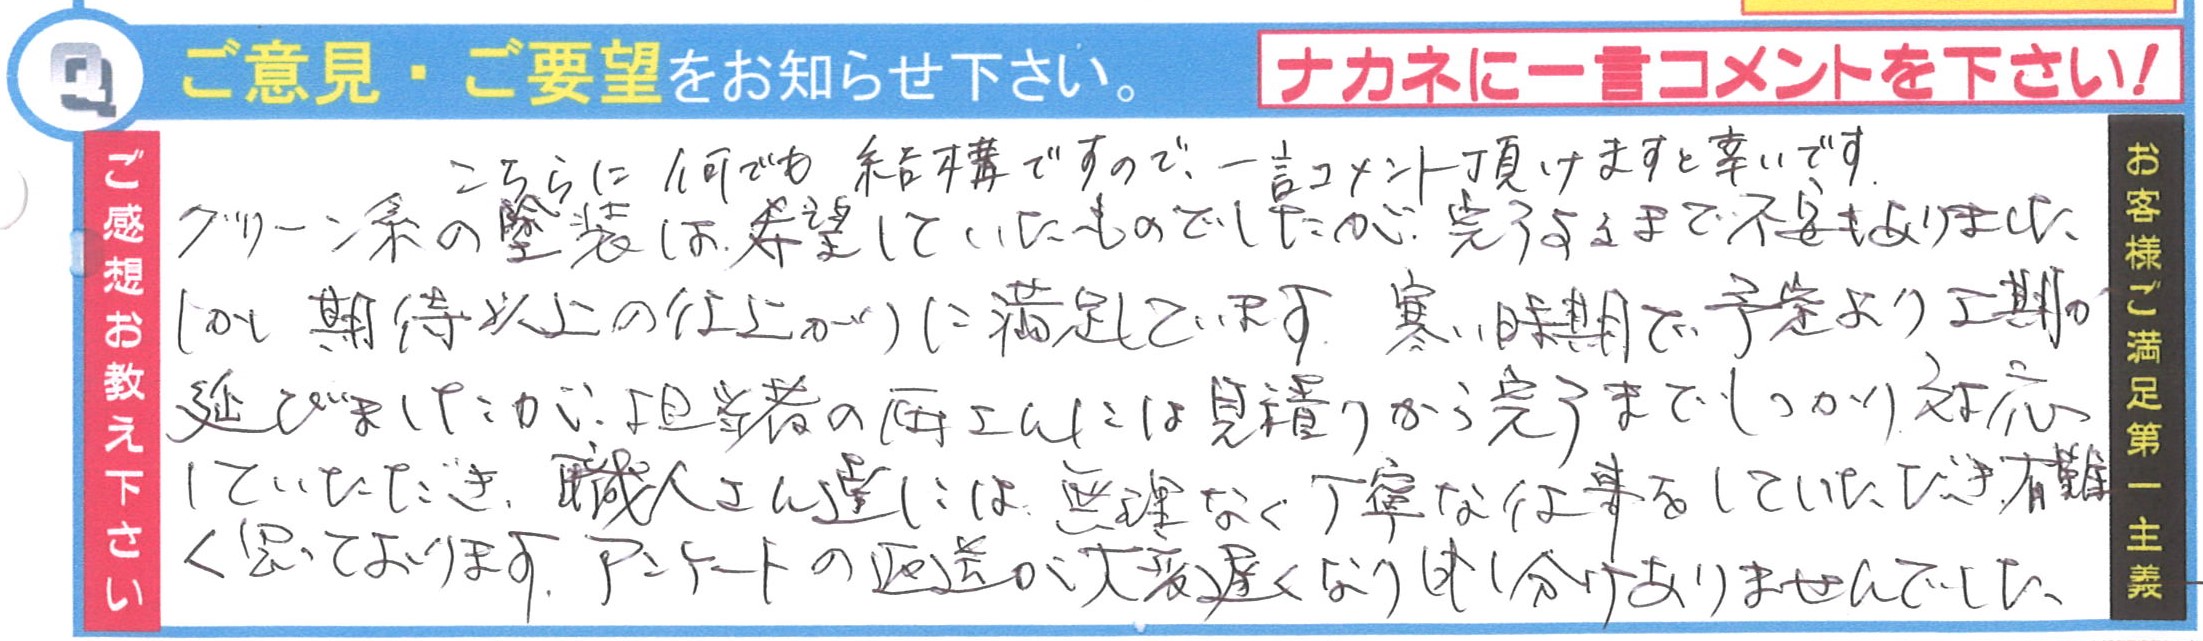 Q ご意見・ご要望をお知らせ下さい。
ナカネに一言コメントを下さい!
ご感想お教え下さい
こちらに何でも結構ですので、一言コメント頂けますと幸いです.
グリーン系の塗装は、希望していたものでしたが、完了するまで不安もありました、
しかし期待以上の仕上がりに満足しています. 寒い時期で、予定より工期が
延びましたが、担当者の さんには見積りから完了までしっかり対応
していただき、職人さん達には、無理なく丁寧な仕事をしていただき、有難
く思っております。アンケートの返送が大変遅くなり申し分けありませんでした、
お客様ご満足第一主義